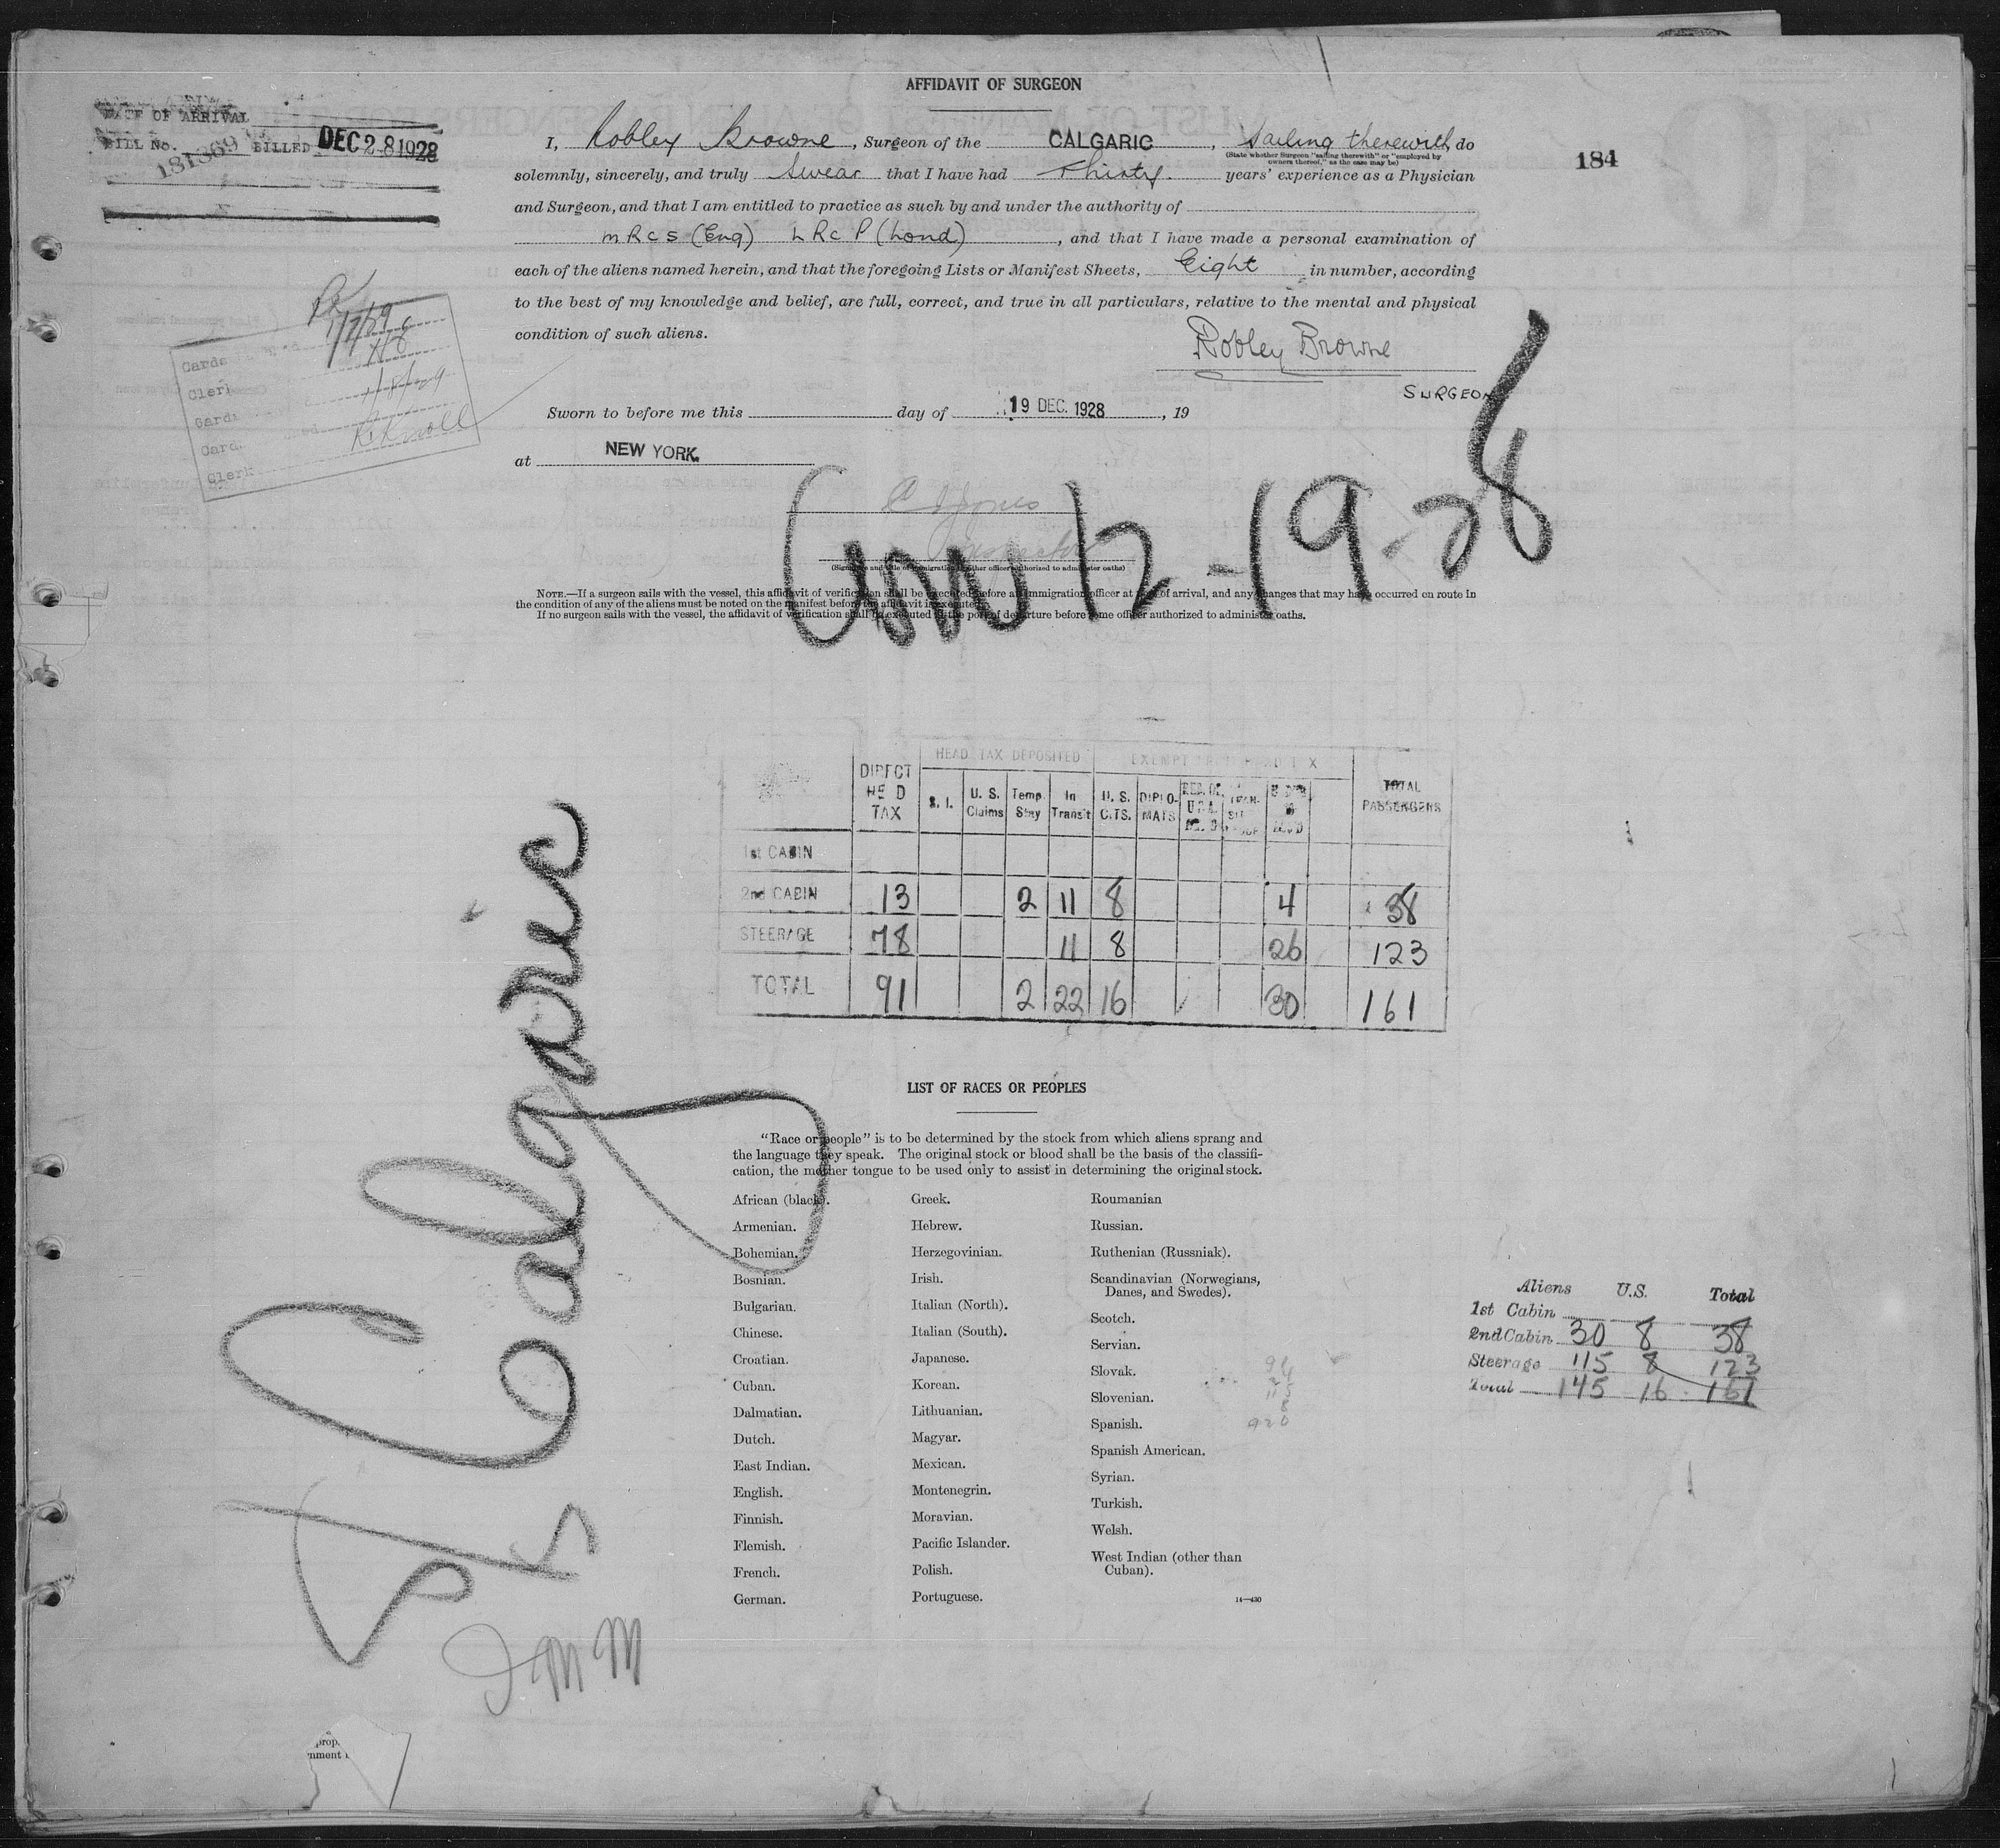 AFFIDAVIT OF SURGEON
DATE OF ARRIVAL
BILL No. 181369 BILLED DEC 28 1928
184
I, Robley Browne, Surgeon of the CALGARIC, Sailing therewith do
(State whether Surgeon "sailing therewith" or "employed by
owners thereof," as the case may be)
solemnly, sincerely, and truly swear that I have had Thirty. years' experience as a Physician
and Surgeon, and that I am entitled to practice as such by and under the authority of
MRCS (Eng) LRCP (Lond), and that I have made a personal examination of
each of the aliens named herein, and that the foregoing Lists or Manifest Sheets, Eight in number, according
to the best of my knowledge and belief, are full, correct, and true in all particulars, relative to the mental and physical
condition of such aliens.
Robley Browne
SURGEON
Sworn to before me this day of 19 DEC. 1928, 19
at NEW YORK.
Cards
Clerk
Cards
Card
Clerk
Inspector
(Signature and title of immigration or other officer authorized to administer oaths)
12-19-28
NOTE.—If a surgeon sails with the vessel, this affidavit of verification shall be executed before an immigration officer at port of arrival, and any changes that may have occurred on route in
the condition of any of the aliens must be noted on the manifest before the affidavit is executed.
If no surgeon sails with the vessel, the affidavit of verification shall be executed at the port of departure before some officer authorized to administer oaths.
HEAD TAX DEPOSITED EXEMPT FROM HEAD TAX
DIRECT HEAD TAX S. I. U. S. Claims Temp. Stay In Transit U. S. CITS. DIPLOMATS TOTAL PASSENGERS
1st CABIN
2nd CABIN 13 2 11 8 4 38
STEERAGE 78 11 8 26 123
TOTAL 91 2 22 16 30 161
S/S Calgaric
IMM
LIST OF RACES OR PEOPLES
"Race or people" is to be determined by the stock from which aliens sprang and
the language they speak. The original stock or blood shall be the basis of the classifi-
cation, the mother tongue to be used only to assist in determining the original stock.
African (black).
Armenian.
Bohemian.
Bosnian.
Bulgarian.
Chinese.
Croatian.
Cuban.
Dalmatian.
Dutch.
East Indian.
English.
Finnish.
Flemish.
French.
German.
Greek.
Hebrew.
Herzegovinian.
Irish.
Italian (North).
Italian (South).
Japanese.
Korean.
Lithuanian.
Magyar.
Mexican.
Montenegrin.
Moravian.
Pacific Islander.
Polish.
Portuguese.
Roumanian
Russian.
Ruthenian (Russniak).
Scandinavian (Norwegians,
Danes, and Swedes).
Scotch.
Servian.
Slovak.
Slovenian.
Spanish.
Spanish American.
Syrian.
Turkish.
Welsh.
West Indian (other than
Cuban).
14—430
Aliens U.S. Total
1st Cabin
2nd Cabin 30 8 38
Steerage 115 8 123
Total 145 16 161